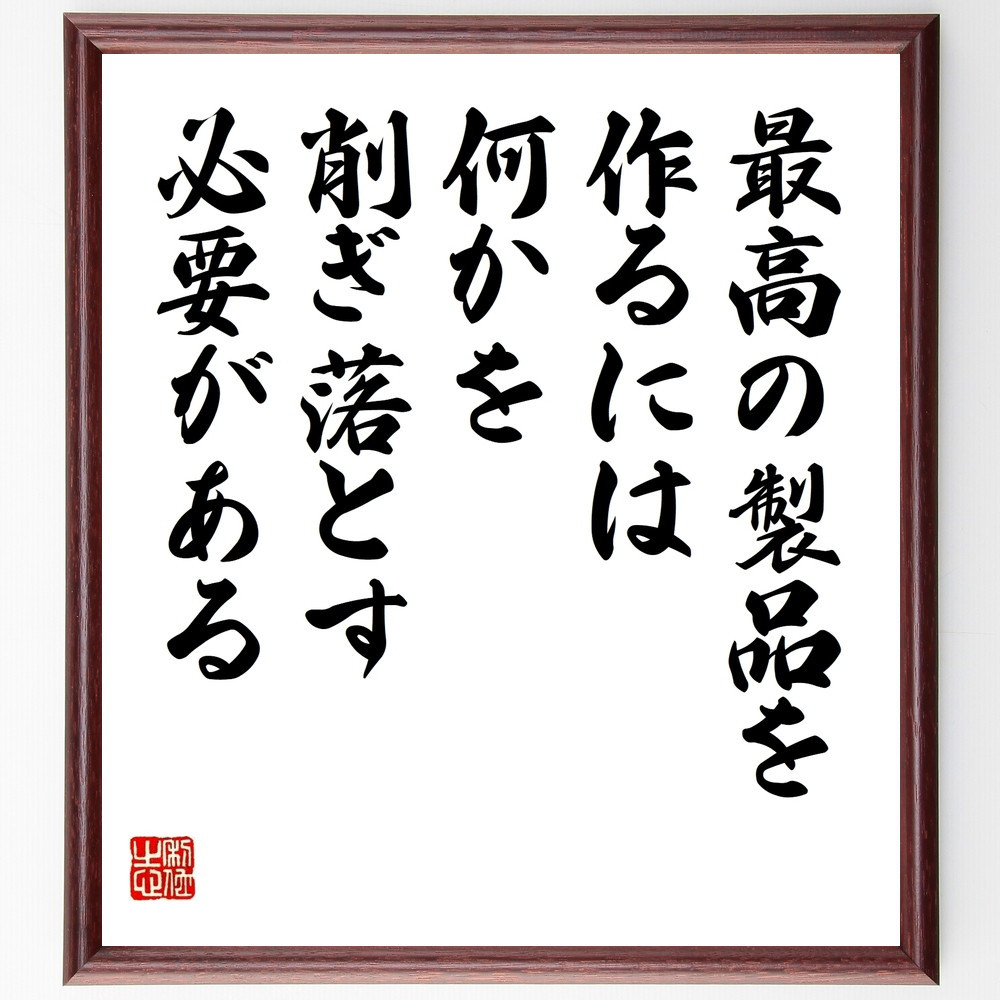 最高の製品を
作るには
何かを
削ぎ落とす
必要がある